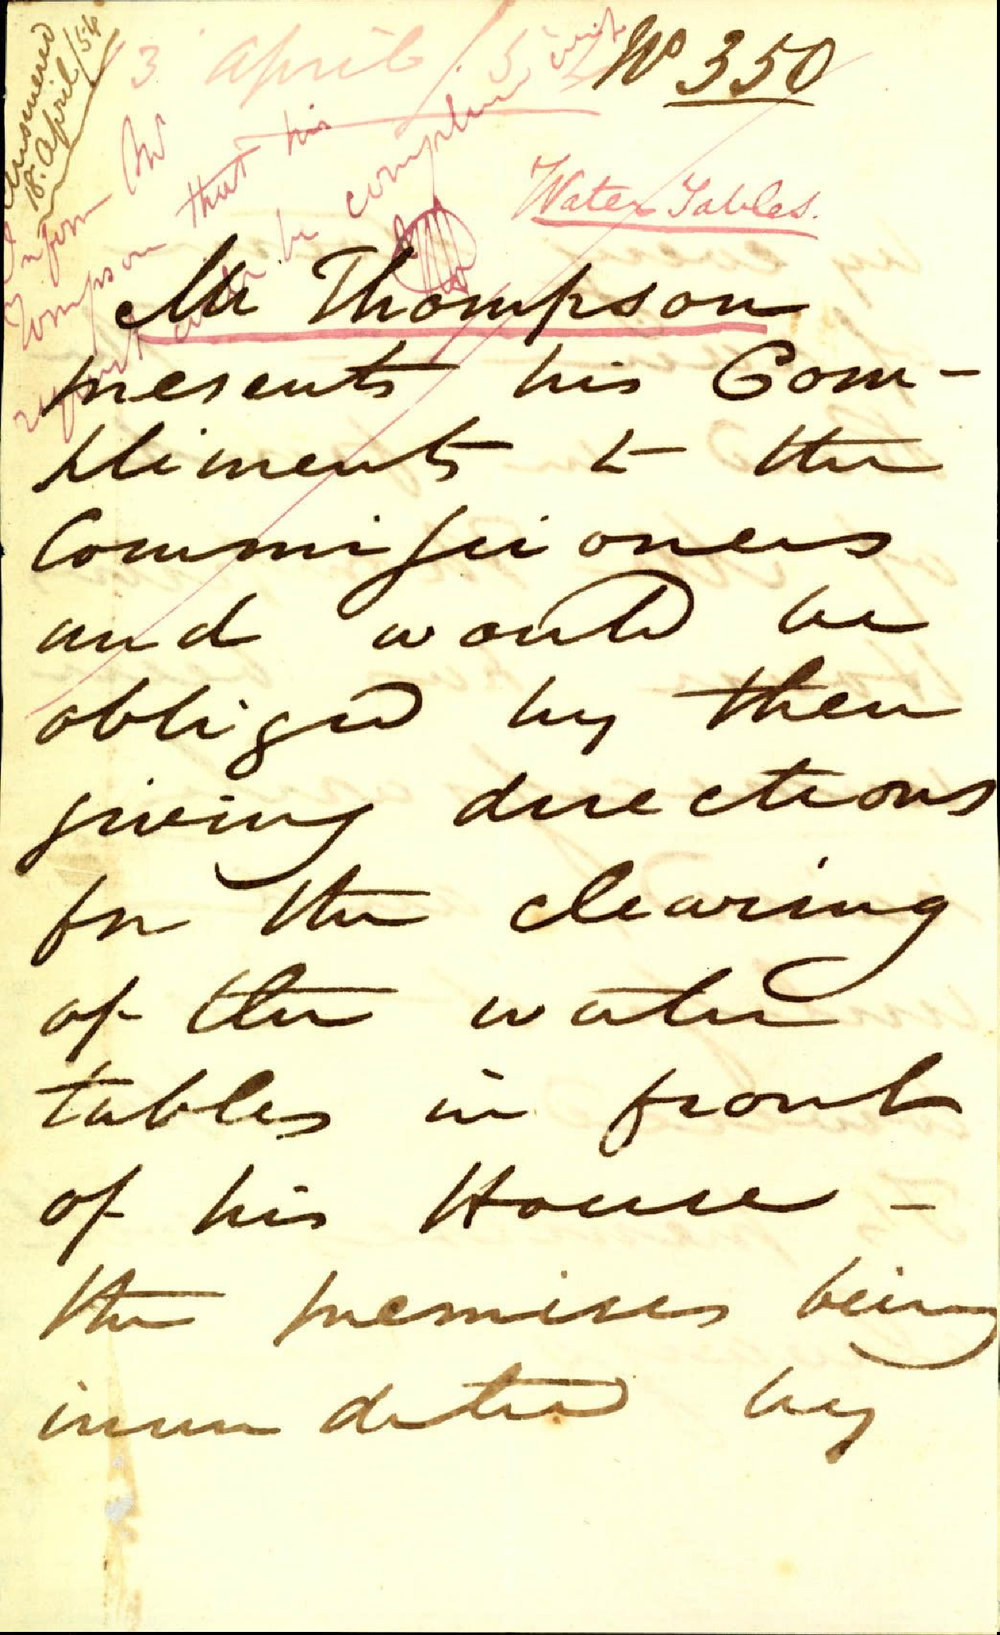 Answered
18. April/54
13 April /54
No 350
Inform Mr
Tompson that his
request will be complied with
Water Tables.
Mr Thompson
presents his Com-
pliments to the
Commissioners
and would be
obliged by their
giving directions
for the clearing
of the water
tables in front
of his House -
the premises being
inundated by